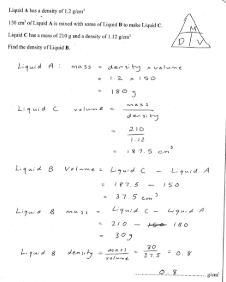 Liquid A has a density of 1.2 g/cm³
150 cm³ of Liquid A is mixed with some of Liquid B to make Liquid C.
Liquid C has a mass of 210 g and a density of 1.12 g/cm³
Find the density of Liquid B.
M
D V
Liquid A : mass = density × volume
= 1.2 × 150
= 180 g
Liquid C volume = mass / density
= 210 / 1.12
= 187.5 cm³
Liquid B Volume = Liquid C - Liquid A
= 187.5 - 150
= 37.5 cm³
Liquid B mass = Liquid C - Liquid A
= 210 - 180
= 30 g
Liquid B density = mass / volume = 30 / 37.5 = 0.8
0.8 g/cm³